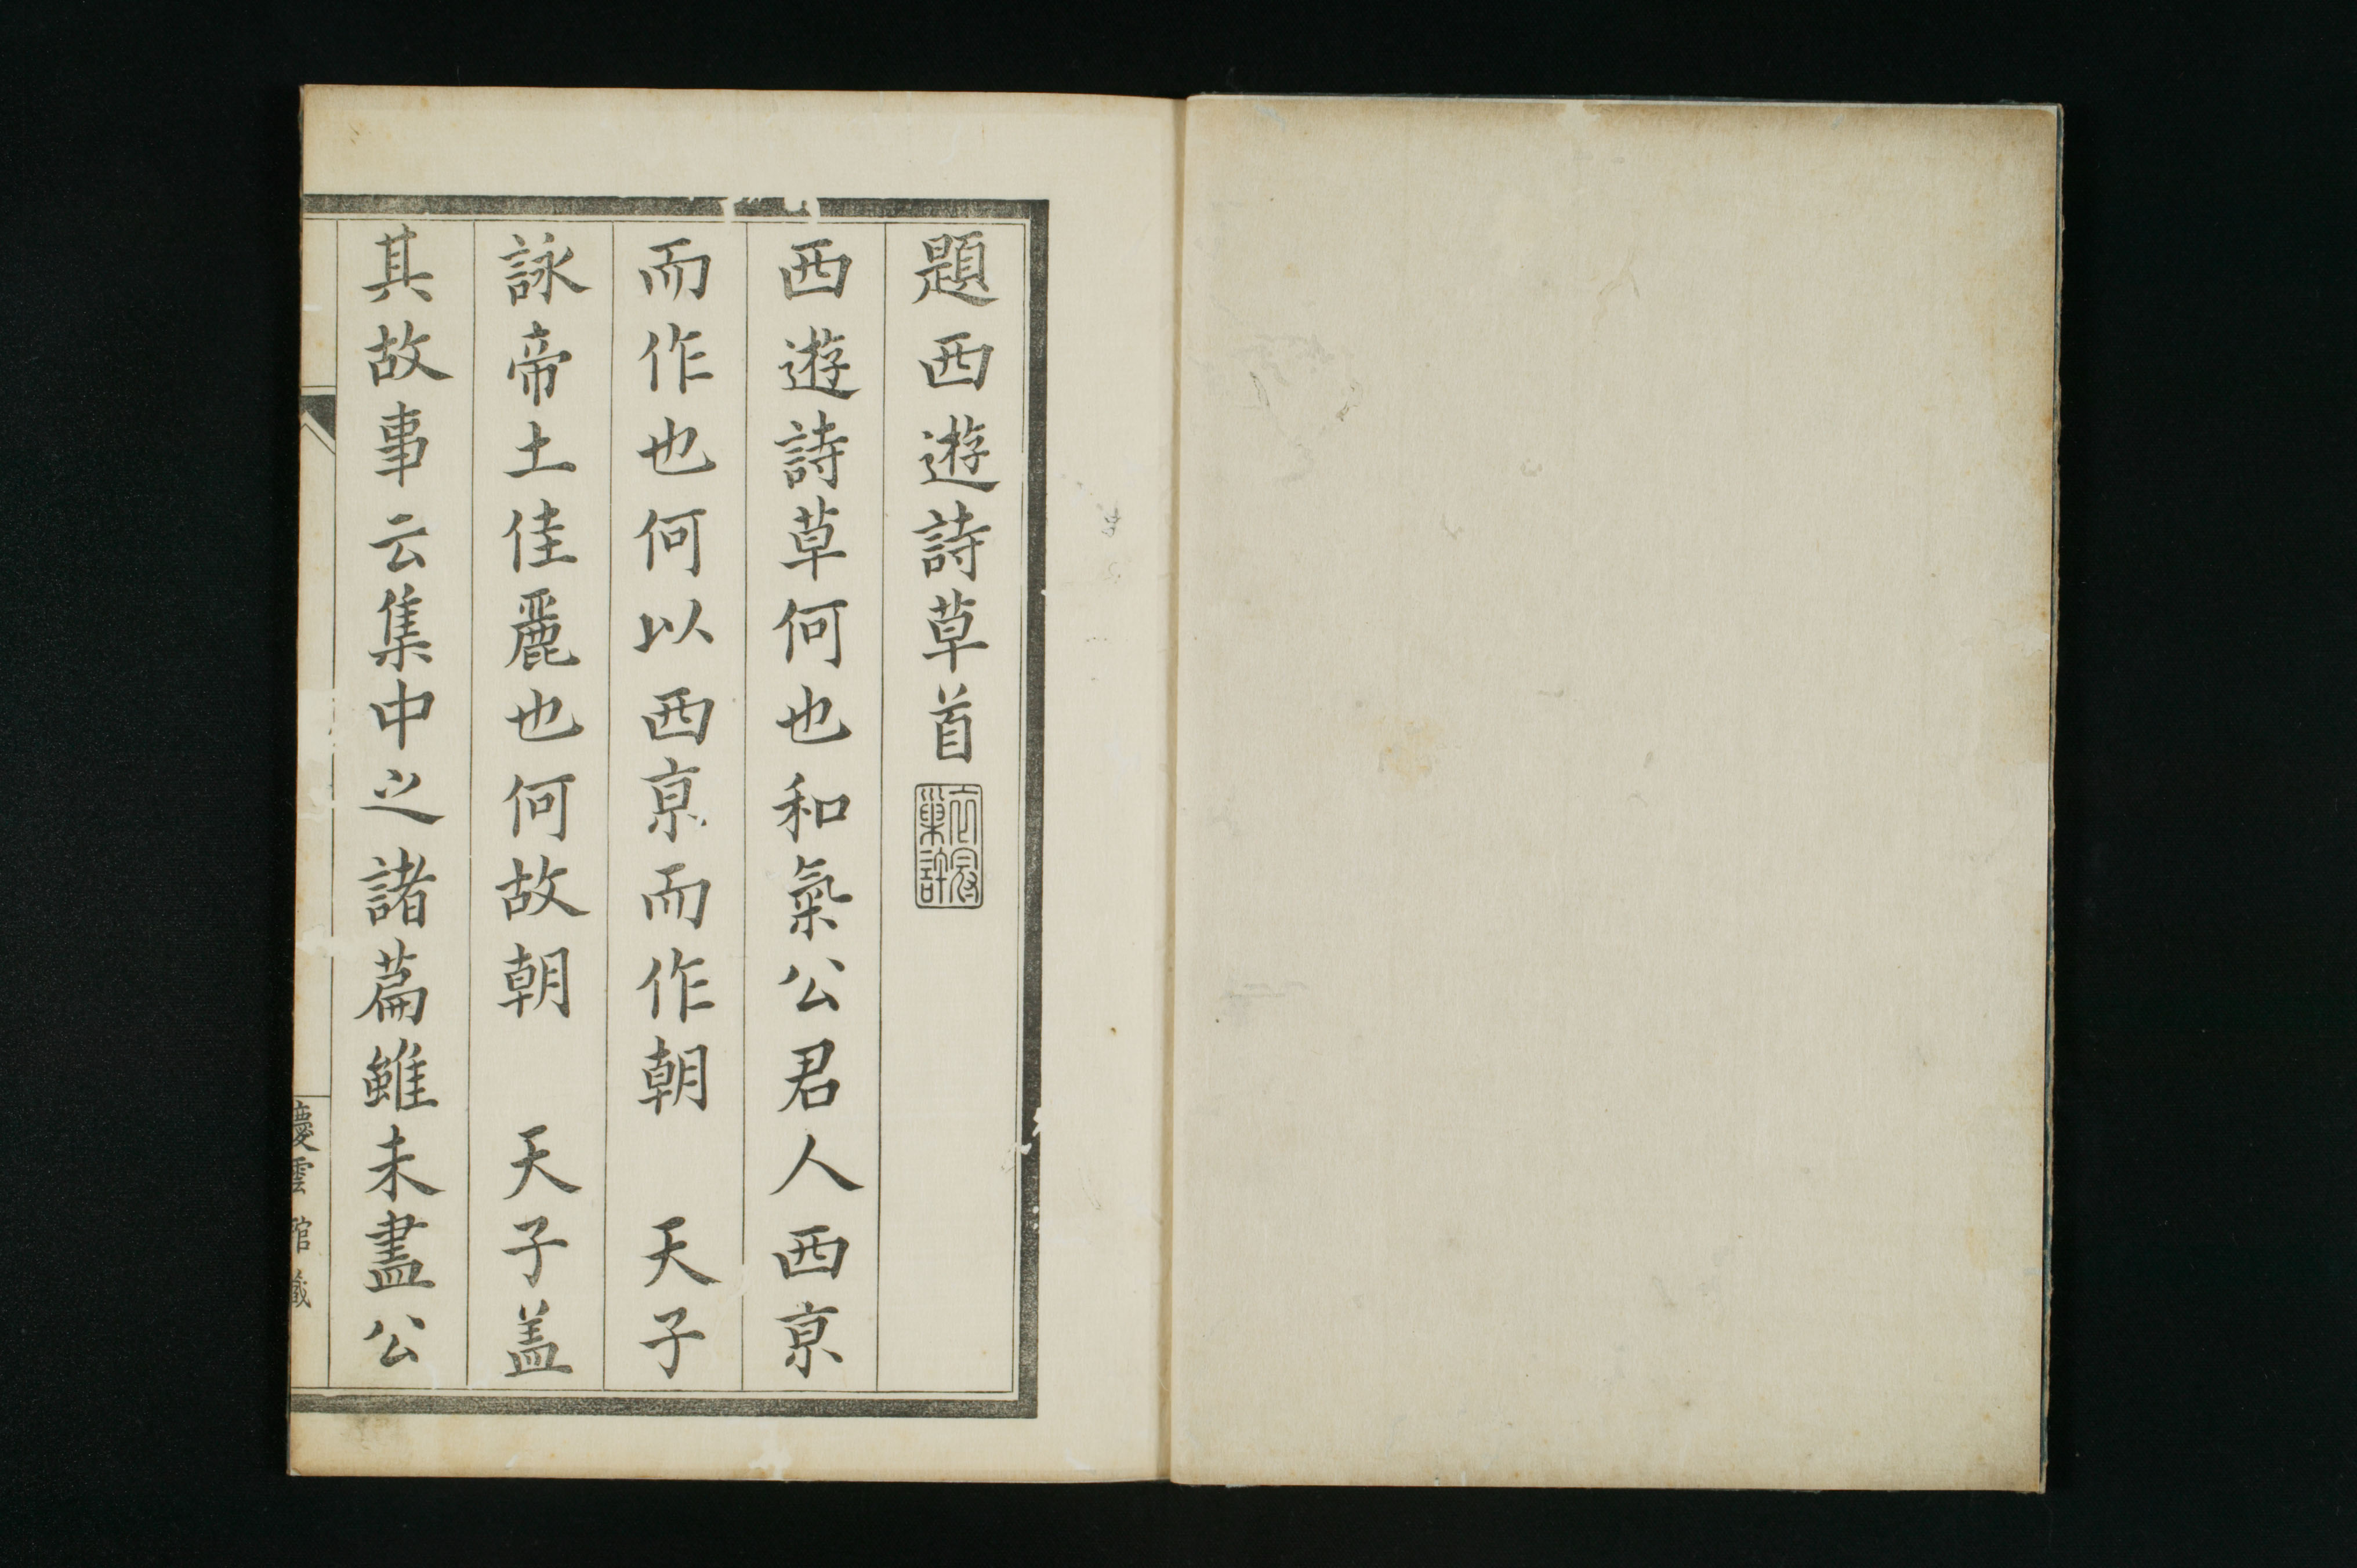 題西遊詩草首
西遊詩草何也和氣公君人西京
而作也何以西京而作朝　天子
詠帝土佳麗也何故朝　天子盖
其故事云集中之諸篇雖未盡公
慶雲館藏